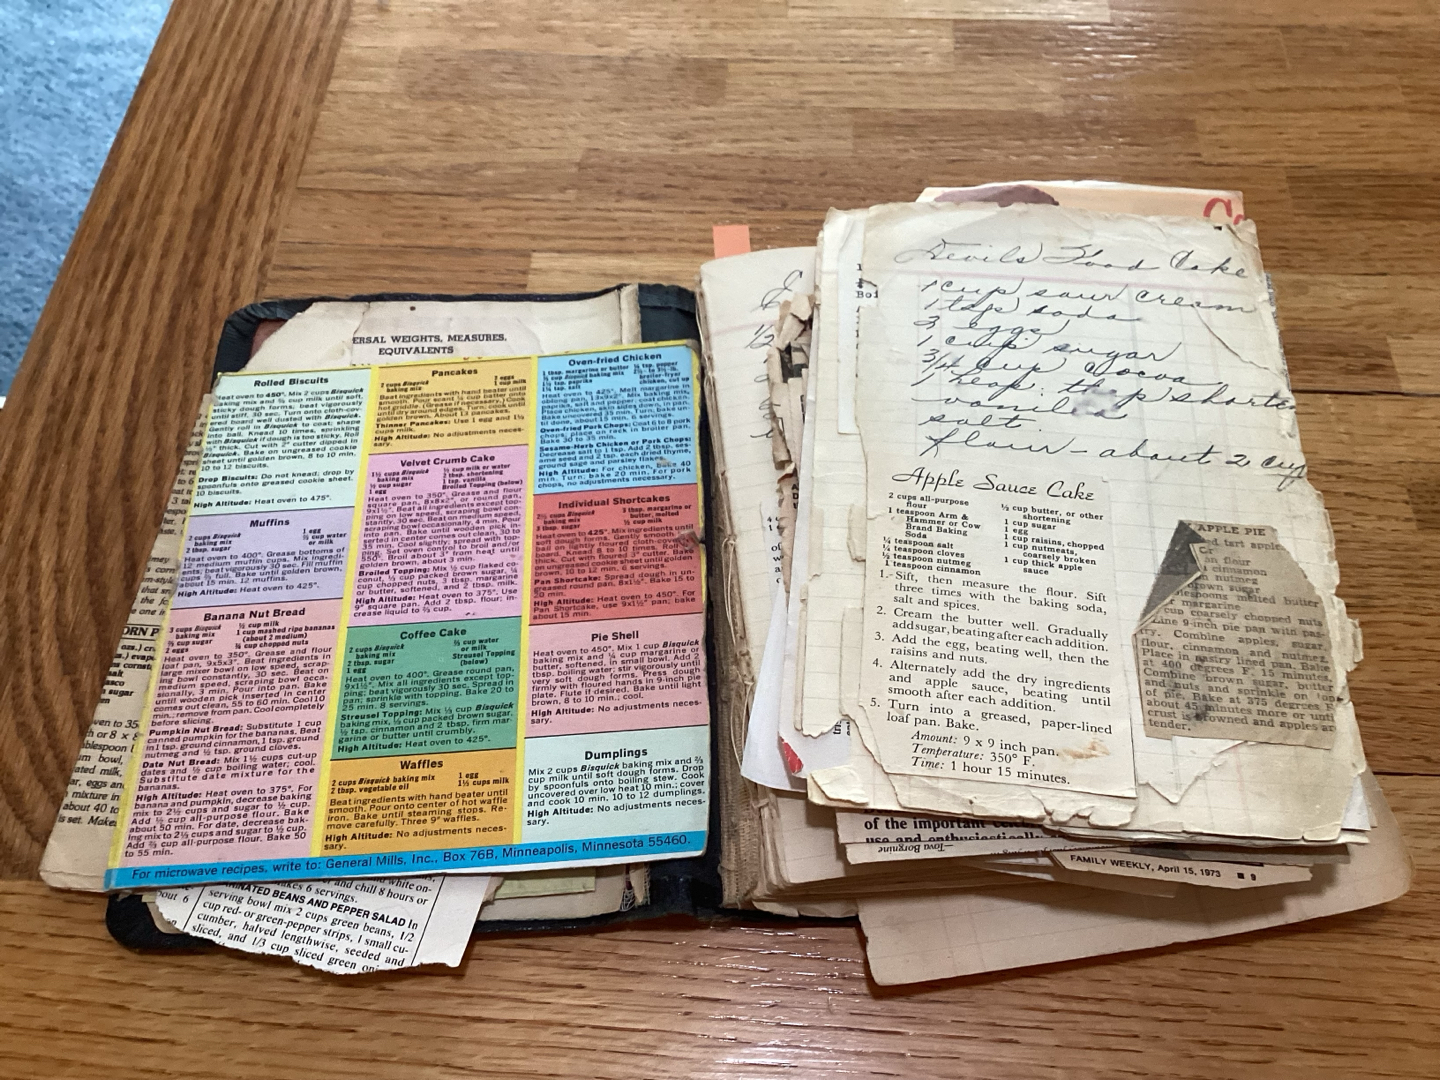 ERSAL WEIGHTS, MEASURES,
EQUIVALENTS
Rolled Biscuits
Heat oven to 450°. Mix 2 cups Bisquick
baking mix and ⅔ cup milk until soft,
sticky dough forms; beat vigorously
until stiff, 30 sec. Turn onto cloth-cov-
ered board well dusted with Bisquick.
Gently roll in Bisquick to coat; shape
into ball. Knead 10 times, sprinkling
with Bisquick if dough is too sticky. Roll
½" thick. Cut with 2" cutter dipped in
Bisquick. Bake on ungreased cookie
sheet until golden brown, 8 to 10 min.
10 to 12 biscuits.
Drop Biscuits: Do not knead; drop by
spoonfuls onto greased cookie sheet.
10 biscuits.
High Altitude: Heat oven to 475°.
Muffins
2 cups Bisquick 1 egg
baking mix ⅔ cup water
2 tbsp. sugar or milk
Heat oven to 400°. Grease bottoms of
12 medium muffin cups. Mix ingredi-
ents; beat vigorously 30 sec. Fill muffin
cups ⅔ full. Bake until golden brown,
about 15 min. 12 muffins.
High Altitude: Heat oven to 425°.
Banana Nut Bread
3 cups Bisquick ½ cup milk
baking mix 1 cup mashed ripe bananas
⅔ cup sugar (about 2 medium)
2 eggs ¾ cup chopped nuts
Heat oven to 350°. Grease and flour
loaf pan, 9x5x3". Beat ingredients in
large mixer bowl on low speed, scrap-
ing bowl constantly, 30 sec. Beat on
medium speed, scraping bowl occa-
sionally, 3 min. Pour into pan. Bake
until wooden pick inserted in center
comes out clean, 55 to 60 min. Cool 5
min.; remove from pan. Cool completely
before slicing.
Pumpkin Nut Bread: Substitute 1 cup
canned pumpkin for the bananas. Beat
in 1 tsp. ground cinnamon, 1 tsp. ground
nutmeg and ½ tsp. ground cloves.
Date Nut Bread: Mix 1½ cups cut-up
dates and ½ cup boiling water; cool.
Substitute date mixture for the
bananas.
High Altitude: Heat oven to 375°. For
banana and pumpkin, decrease baking
mix to 2½ cups and sugar to ½ cup.
Add ½ cup all-purpose flour. Bake
about 50 min. For date, decrease bak-
ing mix to 2⅓ cups and sugar to ½ cup.
Add ⅔ cup all-purpose flour. Bake 50
to 55 min.
Pancakes
2 cups Bisquick 2 eggs
baking mix 1 cup milk
Beat ingredients with hand beater until
smooth. Pour scant ¼ cup batter onto
hot griddle. (Grease if necessary.) Cook
until dry around edges. Turn; cook until
golden brown. About 13 pancakes.
Thinner Pancakes: Use 1 egg and 1½
cups milk.
High Altitude: No adjustments neces-
sary.
Velvet Crumb Cake
1½ cups Bisquick ½ cup milk or water
baking mix 2 tbsp. shortening
½ cup sugar 1 tsp. vanilla
1 egg Broiled Topping (below)
Heat oven to 350°. Grease and flour
square pan, 8x8x2", or round pan,
9x1½". Beat all ingredients except top-
ping on low speed, scraping bowl con-
stantly, 30 sec. Beat on medium speed,
scraping bowl occasionally, 4 min. Pour
into pan. Bake until wooden pick in-
serted in center comes out clean, 30 to
35 min. Cool slightly; spread with top-
ping. Set oven control to broil and/or
550°. Broil about 3" from heat until
golden brown, about 3 min.
Broiled Topping: Mix ½ cup flaked co-
conut, ⅓ cup packed brown sugar, ¼
cup chopped nuts, 3 tbsp. margarine
or butter, softened, and 2 tbsp. milk.
High Altitude: Heat oven to 375°. Use
9" square pan. Add 2 tbsp. flour; in-
crease liquid to ⅔ cup.
Coffee Cake
2 cups Bisquick ⅔ cup water
baking mix or milk
2 tbsp. sugar Streusel Topping
1 egg (below)
Heat oven to 400°. Grease round pan,
9x1½". Mix all ingredients except top-
ping; beat vigorously 30 sec. Spread in
pan; sprinkle with topping. Bake 20 to
25 min. 8 servings.
Streusel Topping: Mix ⅓ cup Bisquick
baking mix, ⅓ cup packed brown sugar,
½ tsp. cinnamon and 2 tbsp. firm mar-
garine or butter until crumbly.
High Altitude: Heat oven to 425°.
Waffles
2 cups Bisquick baking mix 1 egg
2 tbsp. vegetable oil 1⅓ cups milk
Beat ingredients with hand beater until
smooth. Pour onto center of hot waffle
iron. Bake until steaming stops. Re-
move carefully. Three 9" waffles.
High Altitude: No adjustments neces-
sary.
Oven-fried Chicken
1 tbsp. margarine or butter ¼ tsp. pepper
⅔ cup Bisquick baking mix 2½- to 3½-lb.
1½ tsp. paprika broiler-fryer
1¼ tsp. salt chicken, cut up
Heat oven to 425°. Melt margarine in
oblong pan, 13x9x2". Mix baking mix,
paprika, salt and pepper; coat chicken.
Place chicken, skin sides down, in pan.
Bake uncovered 35 min. Turn; bake un-
til done, about 15 min. 6 servings.
Oven-fried Pork Chops: Coat 6 to 8 pork
chops, place on rack in broiler pan.
Bake 30 to 35 min.
Sesame-Herb Chicken or Pork Chops:
Decrease salt to 1 tsp. Add 2 tbsp. ses-
ame seed and 2 tsp. each dried thyme,
ground sage and parsley flakes.
High Altitude: For chicken, bake 40
min. Turn; bake 20 min. For pork
chops, no adjustments necessary.
Individual Shortcakes
2⅓ cups Bisquick 3 tbsp. margarine or
baking mix butter, melted
3 tbsp. sugar ½ cup milk
Heat oven to 425°. Mix ingredients until
soft dough forms. Gently smooth into
ball on floured cloth-covered board.
Knead 8 to 10 times. Roll ½" thick.
Cut with floured 3" cutter. Bake
on ungreased cookie sheet until golden
brown, 10 to 12 min. 6 servings.
Pan Shortcake: Spread dough in un-
greased round pan, 8x1½". Bake 15 to
20 min.
High Altitude: Heat oven to 450°. For
Pan Shortcake, use 9x1½" pan; bake
about 15 min.
Pie Shell
Heat oven to 450°. Mix 1 cup Bisquick
baking mix and ¼ cup margarine or
butter, softened, in small bowl. Add 3
tbsp. boiling water; stir vigorously until
very soft dough forms. Press dough
firmly with floured hands in 9-inch pie
plate. Flute if desired. Bake until light
golden brown, 8 to 10 min. Cool.
High Altitude: No adjustments neces-
sary.
Dumplings
Mix 2 cups Bisquick baking mix and ⅔
cup milk until soft dough forms. Drop
by spoonfuls onto boiling stew. Cook
uncovered over low heat 10 min.; cover
and cook 10 min. 10 to 12 dumplings.
High Altitude: No adjustments neces-
sary.
For microwave recipes, write to: General Mills, Inc., Box 76B, Minneapolis, Minnesota 55460.
akes 6 servings.
and chill 8 hours or
INATED BEANS AND PEPPER SALAD In
serving bowl mix 2 cups green beans, 1/2
cup red- or green-pepper strips, 1 small cu-
cumber, halved lengthwise, seeded and
sliced, and 1/3 cup sliced green oni
Devils Food Cake
1 cup sour cream
1 tsp soda
3 eggs
1 cup sugar
3/4 cup cocoa
1 heap tbsp shorte
vanilla
salt
flour - about 2 cup
Apple Sauce Cake
2 cups all-purpose ½ cup butter, or other
flour shortening
1 teaspoon Arm & 1 cup sugar
Hammer or Cow 1 egg
Brand Baking 1 cup raisins, chopped
Soda 1 cup nutmeats,
¼ teaspoon salt coarsely broken
½ teaspoon cloves 1 cup thick apple
½ teaspoon nutmeg sauce
1 teaspoon cinnamon
1. Sift, then measure the flour. Sift
three times with the baking soda,
salt and spices.
2. Cream the butter well. Gradually
add sugar, beating after each addition.
3. Add the egg, beating well, then the
raisins and nuts.
4. Alternately add the dry ingredients
and apple sauce, beating until
smooth after each addition.
5. Turn into a greased, paper-lined
loaf pan. Bake.
Amount: 9 x 9 inch pan.
Temperature: 350° F.
Time: 1 hour 15 minutes.
APPLE PIE
tart apple
flour
cinnamon
nutmeg
own sugar
espoons melted butter
margarine
cup coarsely chopped nuts
Line 9-inch pie pan with pas-
try. Combine apples, sugar,
flour, cinnamon and nutmeg.
Place in pastry lined pan. Bake
at 400 degrees F 15 minutes.
Combine brown sugar, butter
and nuts and sprinkle on top
of pie. Bake at 375 degrees F
about 45 minutes more or until
crust is browned and apples are
tender.
of the important
use and enthusiastically
FAMILY WEEKLY, April 15, 1973 ■ 9